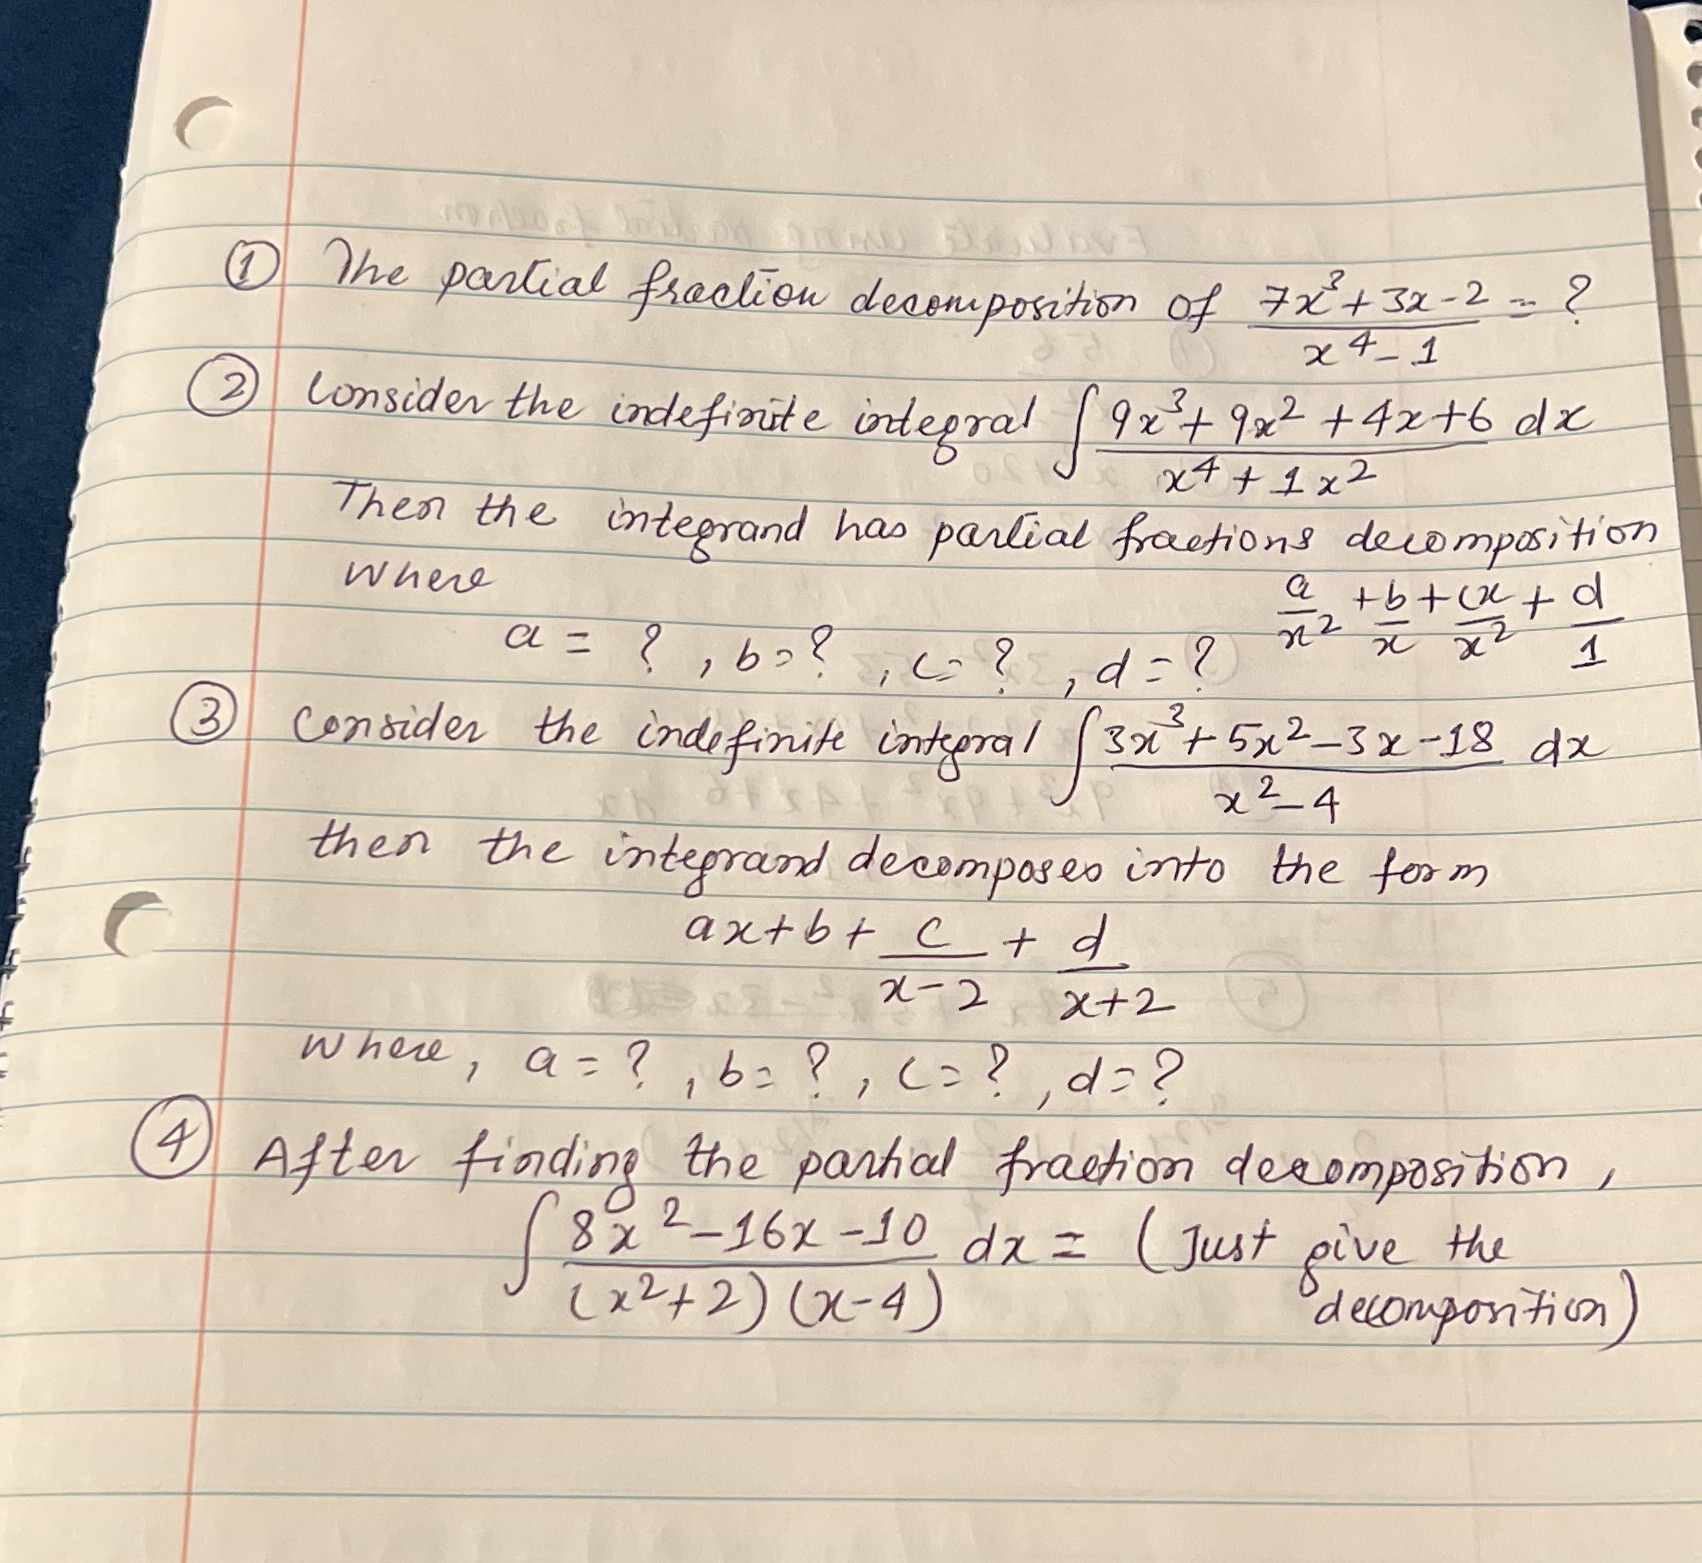 ① The partial fraction decomposition of (7x³+3x-2)/(x⁴-1) = ?
② Consider the indefinite integral ∫ (9x³+9x²+4x+6)/(x⁴+1x²) dx
Then the integrand has partial fractions decomposition
where a/x² + b/x + cx/x² + d/1
a = ?, b=?, c=?, d=?
③ Consider the indefinite integral ∫ (3x³+5x²-3x-18)/(x²-4) dx
then the integrand decomposes into the form
ax+b+ c/(x-2) + d/(x+2)
where, a=?, b=?, c=?, d=?
④ After finding the partial fraction decomposition,
∫ (8x²-16x-10)/((x²+2)(x-4)) dx = (Just give the
decomposition)